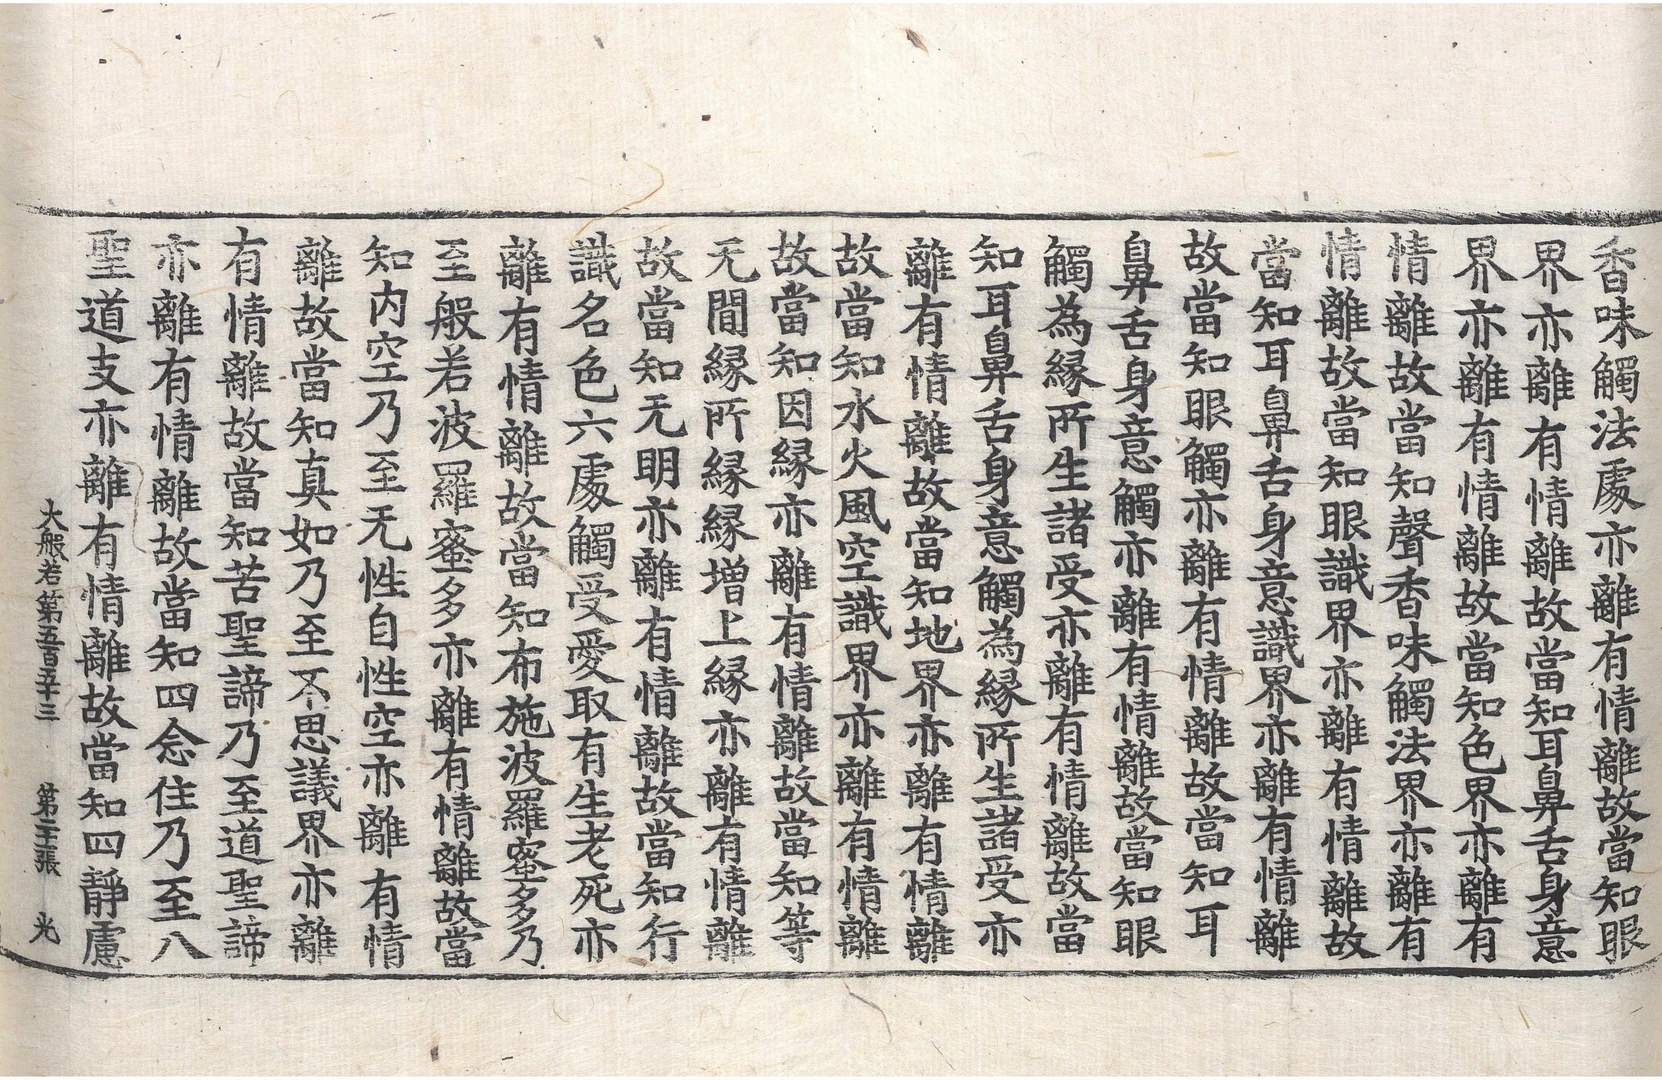 香味觸法處亦離有情離故當知眼
界亦離有情離故當知耳鼻舌身意
界亦離有情離故當知色界亦離有
情離故當知聲香味觸法界亦離有
情離故當知眼識界亦離有情離故
當知耳鼻舌身意識界亦離有情離
故當知眼觸亦離有情離故當知耳
鼻舌身意觸亦離有情離故當知眼
觸為緣所生諸受亦離有情離故當
知耳鼻舌身意觸為緣所生諸受亦
離有情離故當知地界亦離有情離
故當知水火風空識界亦離有情離
故當知因緣亦離有情離故當知等
无間緣所緣緣增上緣亦離有情離
故當知无明亦離有情離故當知行
識名色六處觸受愛取有生老死亦
離有情離故當知布施波羅蜜多乃
至般若波羅蜜多亦離有情離故當
知内空乃至无性自性空亦離有情
離故當知真如乃至不思議界亦離
有情離故當知苦聖諦乃至道聖諦
亦離有情離故當知四念住乃至八
聖道支亦離有情離故當知四靜慮
大般若第五百五十三 第三張 光